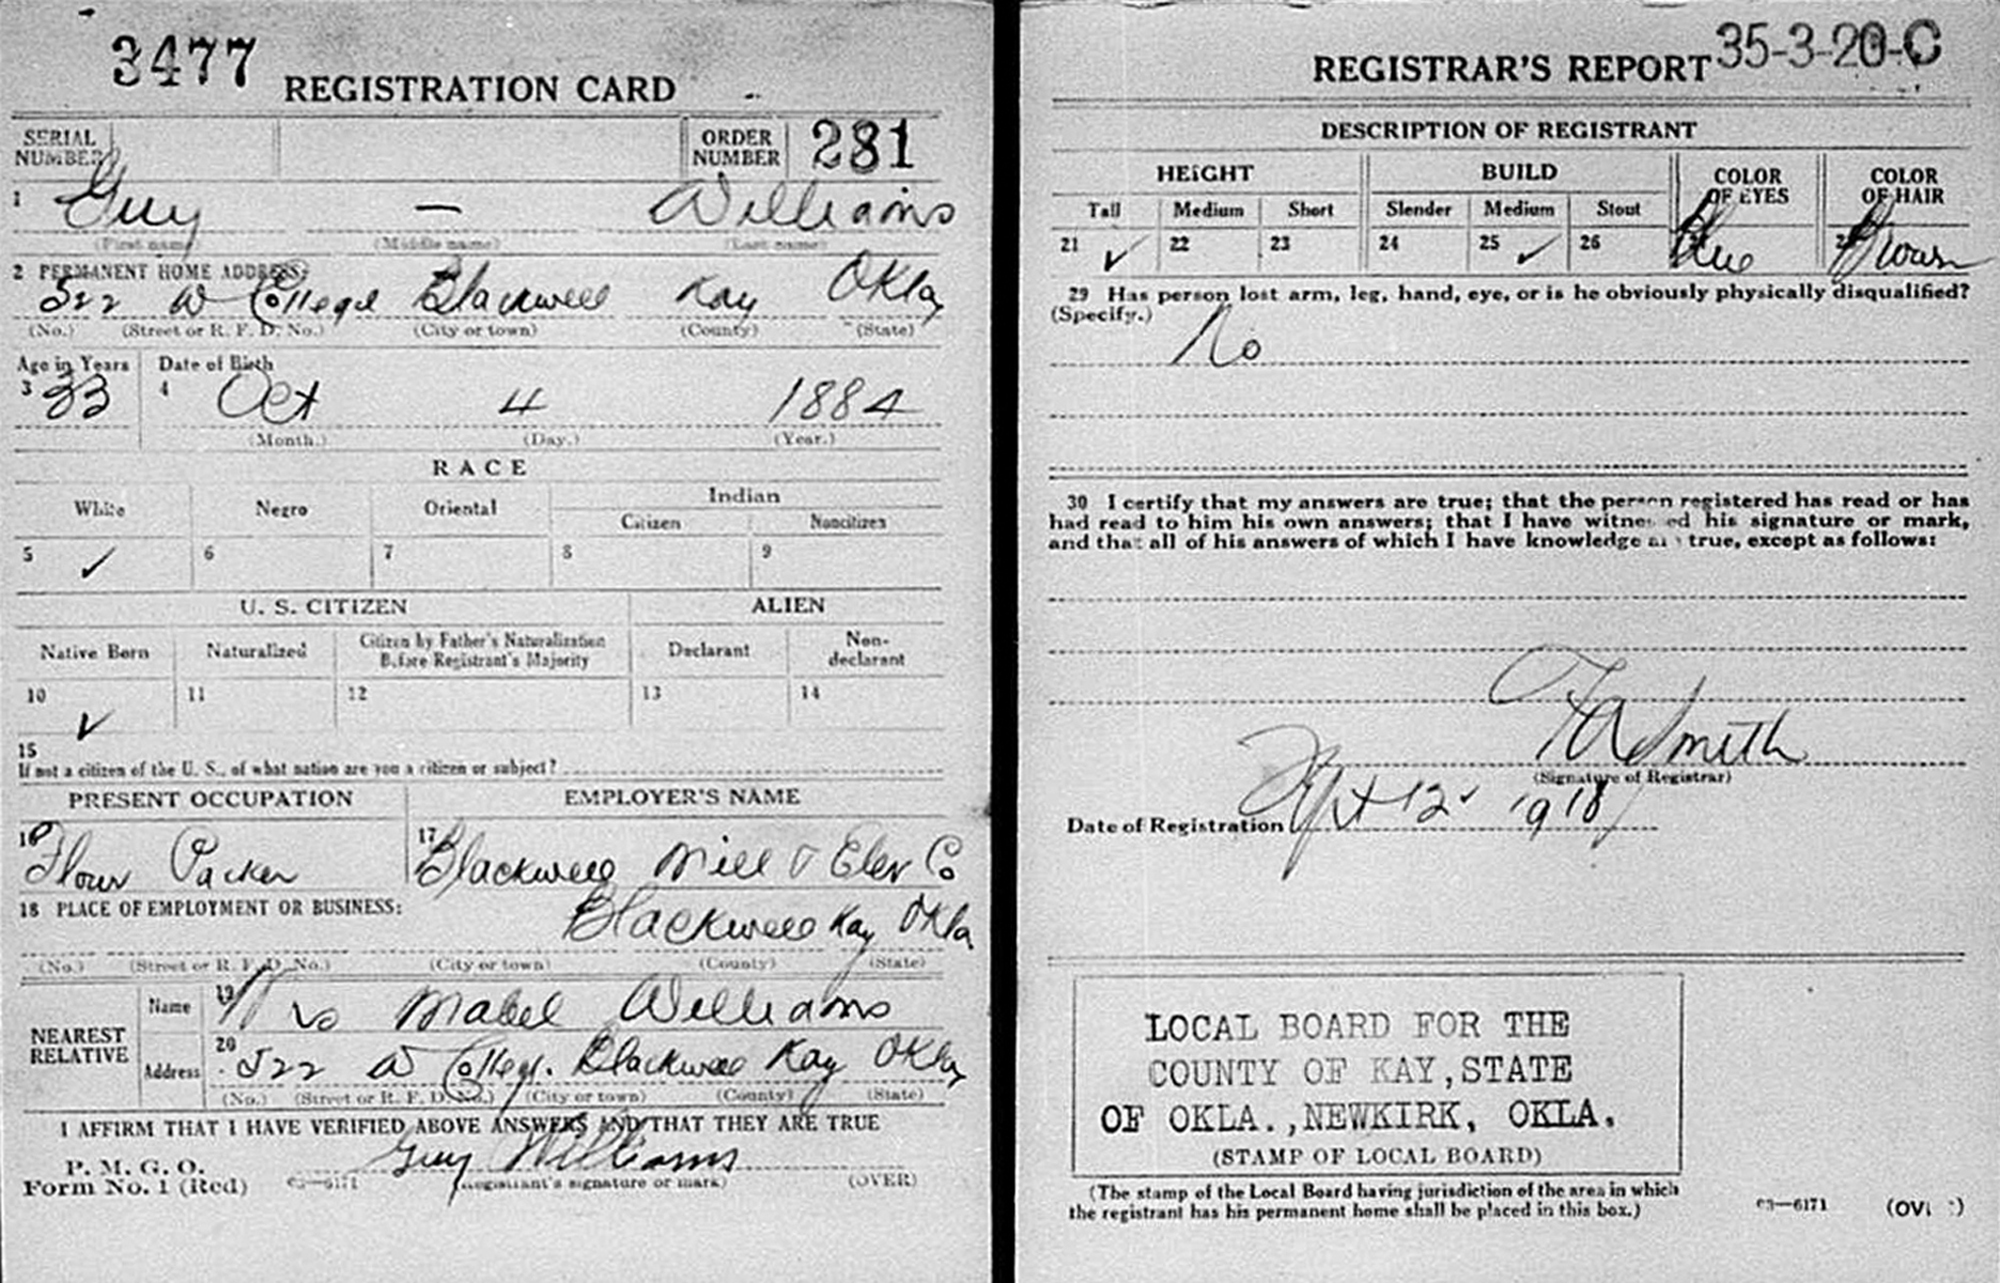 3477
REGISTRATION CARD
SERIAL NUMBER
ORDER NUMBER 281
1 Guy — Williams
(First name) (Middle name) (Last name)
2 PERMANENT HOME ADDRESS:
522 W College Blackwell Kay Okla
(No.) (Street or R. F. D. No.) (City or town) (County) (State)
Age in Years Date of Birth
3 33 4 Oct 4 1884
(Month.) (Day.) (Year.)
RACE
White Negro Oriental Indian
Citizen Noncitizen
5 ✓ 6 7 8 9
U. S. CITIZEN ALIEN
Native Born Naturalized Citizen by Father's Naturalization Before Registrant's Majority Declarant Non-declarant
10 ✓ 11 12 13 14
15
If not a citizen of the U. S., of what nation are you a citizen or subject?
PRESENT OCCUPATION EMPLOYER'S NAME
16 Flour Packer 17 Blackwell Mill & Elev Co
18 PLACE OF EMPLOYMENT OR BUSINESS:
Blackwell Kay Okla
(No.) (Street or R. F. D. No.) (City or town) (County) (State)
NEAREST RELATIVE
Name 19 Mrs Mabel Williams
Address 20 522 W College. Blackwell Kay Okla
(No.) (Street or R. F. D. No.) (City or town) (County) (State)
I AFFIRM THAT I HAVE VERIFIED ABOVE ANSWERS AND THAT THEY ARE TRUE
P. M. G. O.
Form No. 1 (Red) 03—6171 Guy Williams
(Registrant's signature or mark) (OVER)
REGISTRAR'S REPORT 35-3-20-C
DESCRIPTION OF REGISTRANT
HEIGHT BUILD COLOR OF EYES COLOR OF HAIR
Tall Medium Short Slender Medium Stout
21 ✓ 22 23 24 25 ✓ 26 Blue Brown
29 Has person lost arm, leg, hand, eye, or is he obviously physically disqualified?
(Specify.) No
30 I certify that my answers are true; that the person registered has read or has
had read to him his own answers; that I have witnessed his signature or mark,
and that all of his answers of which I have knowledge are true, except as follows:
Smith
(Signature of Registrar)
Date of Registration Sept 12 1918
LOCAL BOARD FOR THE
COUNTY OF KAY, STATE
OF OKLA., NEWKIRK, OKLA.
(STAMP OF LOCAL BOARD)
(The stamp of the Local Board having jurisdiction of the area in which
the registrant has his permanent home shall be placed in this box.)
03—6171 (OVER)